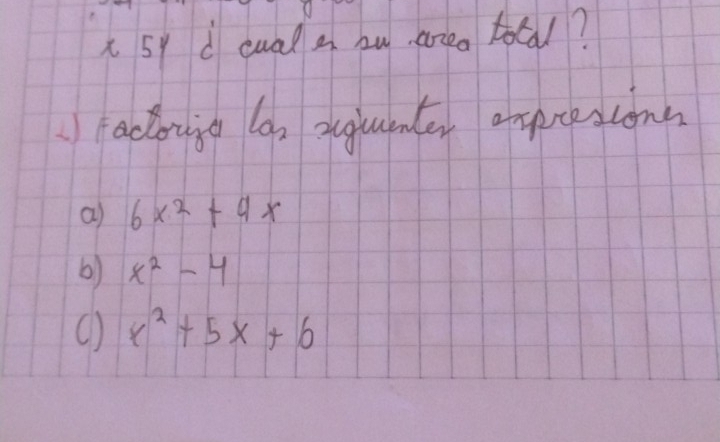 x 5y ¿ cual es su area total?
2) Factoriza las siguientes expresiones
a) 6x² + 9x
b) x² - 4
c) x² + 5x + 6